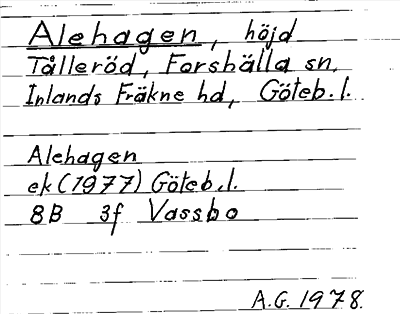 Alehagen, höjd
Tålleröd, Forshälla sn,
Inlands Fräkne hd, Göteb. l.
Alehagen
ek (1977) Göteb. l.
8B 3f Vassbo
A.G. 1978.